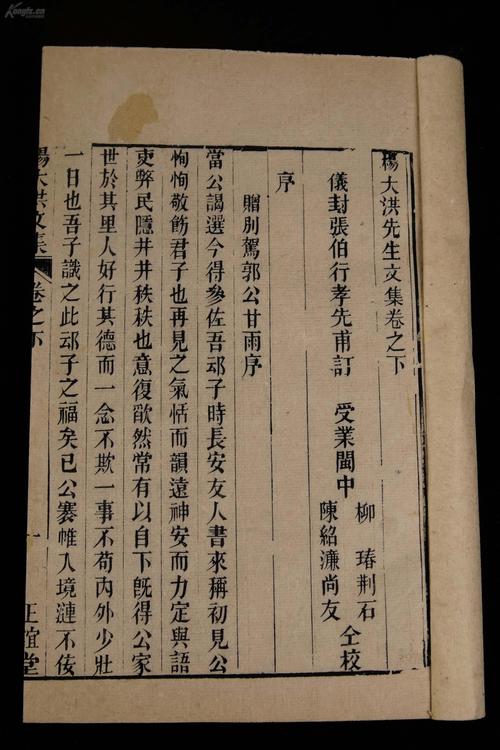 Kongfz.cn
楊大洪先生文集卷之下
儀封張伯行孝先甫訂 受業閩中
柳瑃荆石
陳紹濂尚友
仝校
序
贈別駕郭公甘雨序
當公謁選今得參佐吾邧子時長安友人書來稱初見公
恂恂敬飭君子也再見之氣恬而韻遠神安而力定與語
吏弊民隱井井秩秩也意復歉然常有以自下旣得公家
世於其里人好行其德而一念不欺一事不苟內外少壯
一日也吾子識之此邧子之福矣已公褰帷入境漣不佞
楊大洪文集 卷之下 一 正誼堂